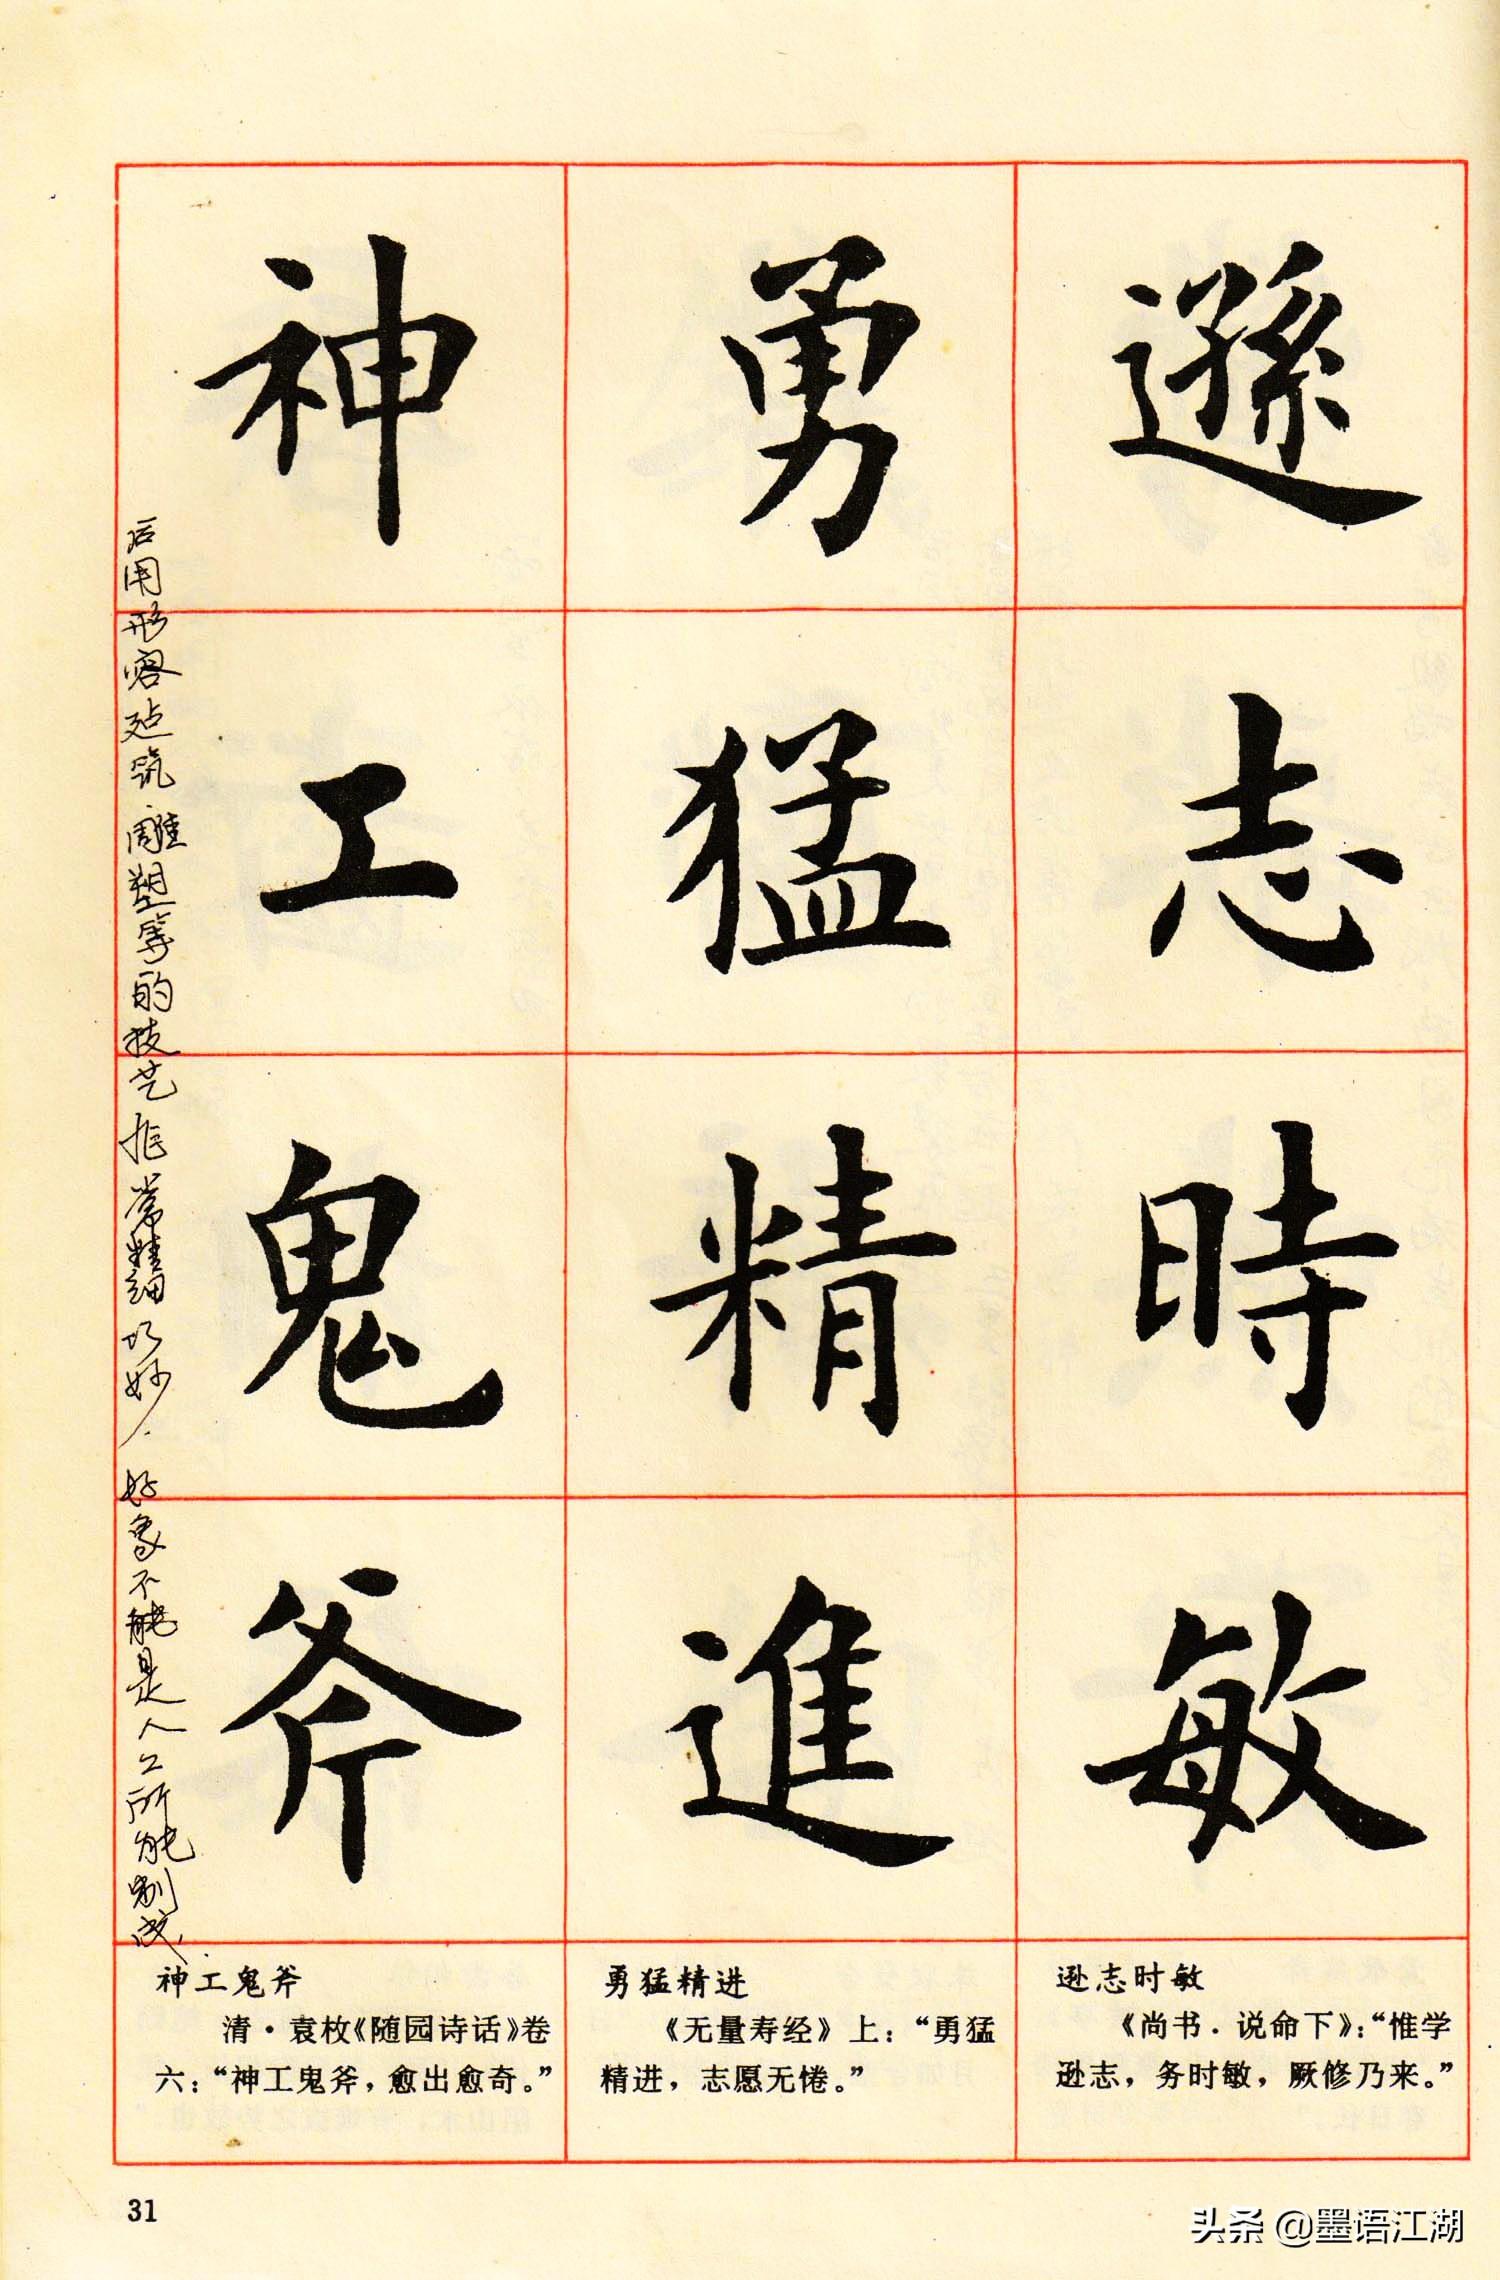 遜志時敏
勇猛精進
神工鬼斧
后用形容建筑雕塑等的技艺非常精细巧妙，好象不能是人工所能制成.
逊志时敏
《尚书·说命下》：“惟学
逊志，务时敏，厥修乃来。”
勇猛精进
《无量寿经》上：“勇猛
精进，志愿无倦。”
神工鬼斧
清·袁枚《随园诗话》卷
六：“神工鬼斧，愈出愈奇。”
31
头条 @墨语江湖